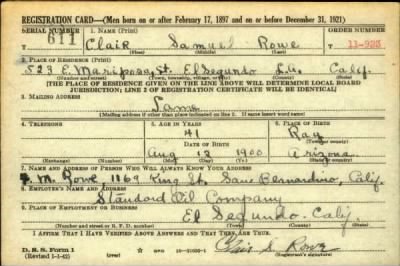 REGISTRATION CARD—(Men born on or after February 17, 1897 and on or before December 31, 1921)
SERIAL NUMBER 1. NAME (Print) ORDER NUMBER
611 Clair Samuel Rowe 11-925
(First) (Middle) (Last)
2. PLACE OF RESIDENCE (Print)
523 E. Mariposa St. El Segundo L.A. Calif.
(Number and street) (Town, township, village, or city) (County) (State)
[THE PLACE OF RESIDENCE GIVEN ON THE LINE ABOVE WILL DETERMINE LOCAL BOARD
JURISDICTION; LINE 2 OF REGISTRATION CERTIFICATE WILL BE IDENTICAL]
3. MAILING ADDRESS
Same
[Mailing address if other than place indicated on line 2. If same insert word same]
4. TELEPHONE 5. AGE IN YEARS 6. PLACE OF BIRTH
41 Ray
DATE OF BIRTH (Town or county)
Aug 12 1900 Arizona
(Exchange) (Number) (Mo.) (Day) (Yr.) (State or country)
7. NAME AND ADDRESS OF PERSON WHO WILL ALWAYS KNOW YOUR ADDRESS
M. Rowe 1169 King St. San Bernardino, Calif.
8. EMPLOYER'S NAME AND ADDRESS
Standard Oil Company
9. PLACE OF EMPLOYMENT OR BUSINESS
El Segundo Calif.
(Number and street or R. F. D. number) (Town) (County) (State)
I AFFIRM THAT I HAVE VERIFIED ABOVE ANSWERS AND THAT THEY ARE TRUE.
D. S. S. Form 1 Clair S. Rowe
(Revised 1-1-42) (Registrant's signature)